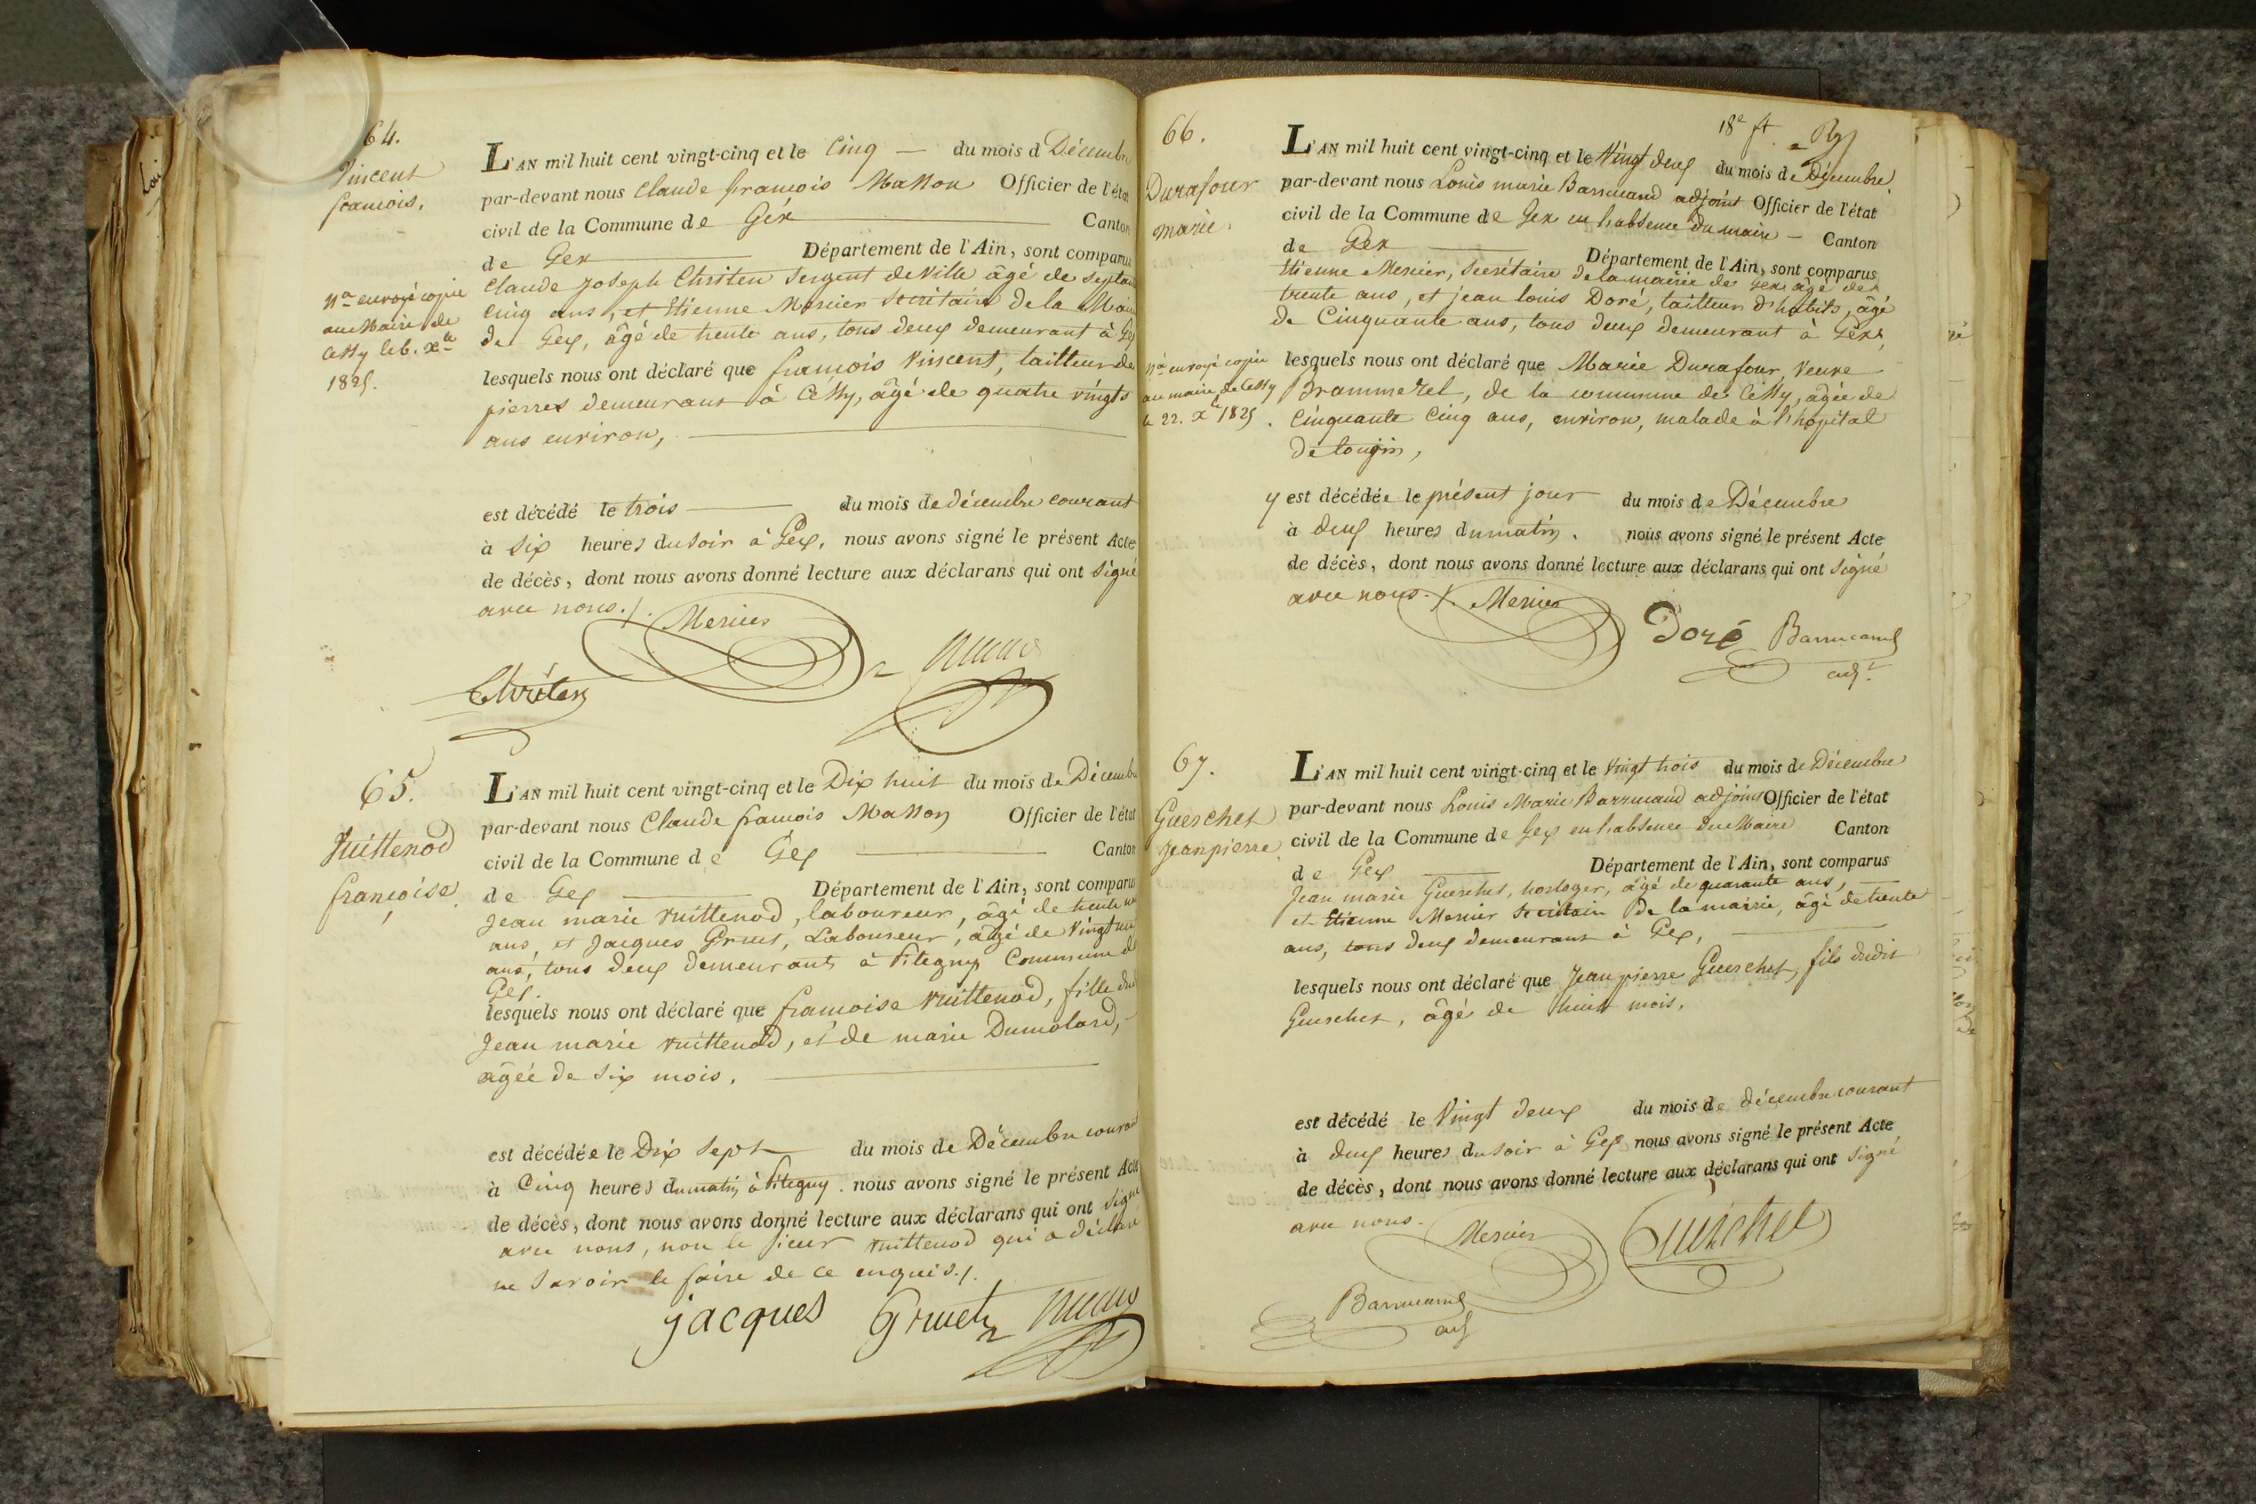 64.
Vincent
françois.
L'AN mil huit cent vingt-cinq et le Cinq — du mois d Décembre
par-devant nous Claude françois Masson Officier de l'état
civil de la Commune de Géx Canton
de Gex Département de l'Ain, sont comparus
Claude Joseph Chriten Sergent de Ville âgé de septante
Cinq ans, et Etienne Mercier Secrétaire de la Mairie
de Gex, âgé de trente ans, tous deux demeurant à Gex
Na envoyé copie
au Maire de
Cessy le 6. Xbre
1825.
lesquels nous ont déclaré que françois Vincent, tailleur de
pierres demeurant à Céssy, âgé de quatre vingts
ans environ,
est décédé le trois du mois de décembre courant
à Six heures du soir à Gex. nous avons signé le présent Acte
de décès, dont nous avons donné lecture aux déclarans qui ont Signé
avec nous./.
Mercier
Chriten
65.
Vuittenod
françoise.
L'AN mil huit cent vingt-cinq et le Dix huit du mois de Décembre
par-devant nous Claude françois Masson Officier de l'état
civil de la Commune d e Gex Canton
de Gex Département de l'Ain, sont comparus
Jean marie Vuittenod, laboureur, âgé de trente un
ans, et Jacques Gruet, Laboureur, âgé de Vingt neuf
ans, tous deux demeurant à Pitegny Commune de
Gex.
lesquels nous ont déclaré que françoise Vuittenod, fille dud
Jean marie Vuittenod, et de marie Dumolard,
âgée de six mois.
est décédée le Dix Sept du mois de Décembre courant
à Cinq heures du matin à Pitegny. nous avons signé le présent Acte
de décès, dont nous avons donné lecture aux déclarans qui ont Signé
avec nous, non le sieur Vuittenod qui a déclaré
ne Savoir le faire de ce enquis./.
jacques Gruet
18e ft.
66.
Durafour
marie.
L'AN mil huit cent vingt-cinq et le Vingt deux du mois de Décembre
par-devant nous Louis marie Barrucand adjoint Officier de l'état
civil de la Commune de Gex en l'absence du maire — Canton
de Gex Département de l'Ain, sont comparus
Etienne Mercier, Secrétaire de la mairie de Gex âgé de
trente ans, et jean louis Doré, tailleur d'habits, âgé
de Cinquante ans, tous deux demeurant à Géx,
Na envoyé copie
au maire de Cessy
le 22. Xe 1825.
lesquels nous ont déclaré que Marie Durafour, Veuve
Brammerel, de la commune de Céssy, âgée de
Cinquante Cinq ans, environ, malade à l'hôpital
de tougin,
y est décédée le présent jour du mois de Décembre
à deux heures du matin. nous avons signé le présent Acte
de décès, dont nous avons donné lecture aux déclarans qui ont Signé
avec nous./. Mercier
Doré Barrucand
adjt.
67.
Guerchet
Jean pierre.
L'AN mil huit cent vingt-cinq et le Vingt trois du mois de Décembre
par-devant nous Louis Marie Barrucand adjoint Officier de l'état
civil de la Commune de Gex en l'absence du Maire Canton
de Gex Département de l'Ain, sont comparus
Jean marie Guerchet, horloger, âgé de quarante ans,
et Etienne Mercier Secrétaire de la mairie, âgé de trente
ans, tous deux demeurant à Gex,
lesquels nous ont déclaré que Jean pierre Guerchet, fils dudit
Guerchet, âgé de huit mois.
est décédé le Vingt deux du mois de décembre courant
à deux heures du soir à Gex nous avons signé le présent Acte
de décès, dont nous avons donné lecture aux déclarans qui ont Signé
avec nous.
Mercier Guerchet
Barrucand
adj